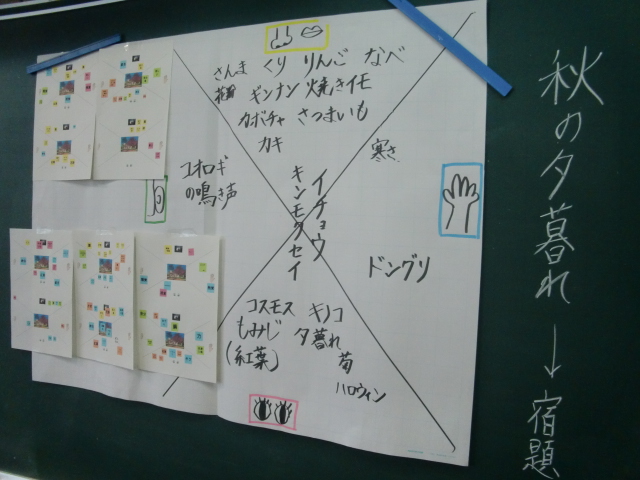 さんま くり りんご なべ
ギンナン 焼きイモ
カボチャ さつまいも
カキ
寒さ
コオロギ
の鳴き声
イチョウ
キンモクセイ
ドングリ
コスモス キノコ
もみじ 夕暮れ
(紅葉) 菊
ハロウィン
秋の夕暮れ→宿題